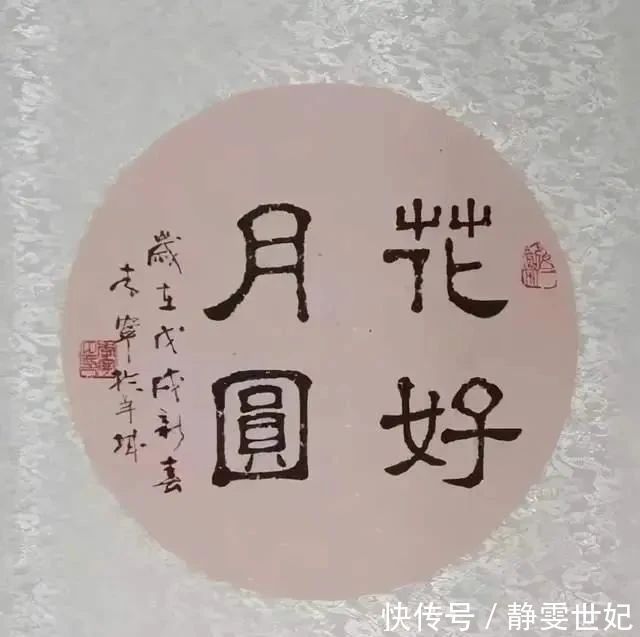 花好
月圓
歲在戊戌新喜
寧於羊城
快传号 / 静雯世妃